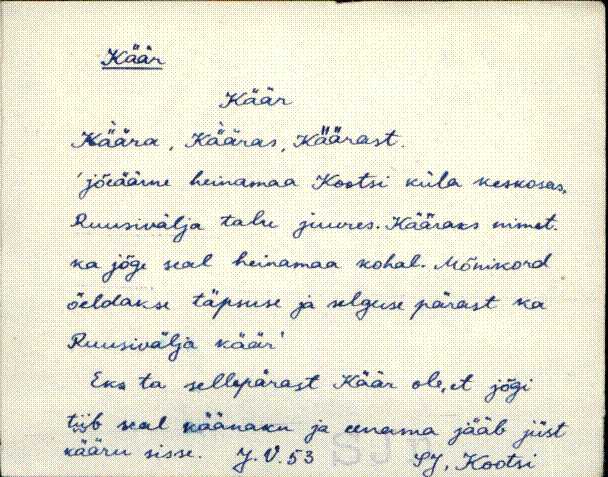 Käär
Käär
Kä̀ära, Kä̀äras, Käärast.
'jõeäärne heinamaa Kootsi küla keskosas,
Ruusivälja talu juures. Kääraks nimet.
ka jõge seal heinamaa kohal. Mõnikord
öeldakse täpsuse ja selguse pärast ka
Ruusivälja käär'
Eks ta sellepärast Käär ole, et jõgi
tiib seal käänaku ja eenama jääb jüst
kääru sisse. J. V. 53 SJ, Kootsi
SJ